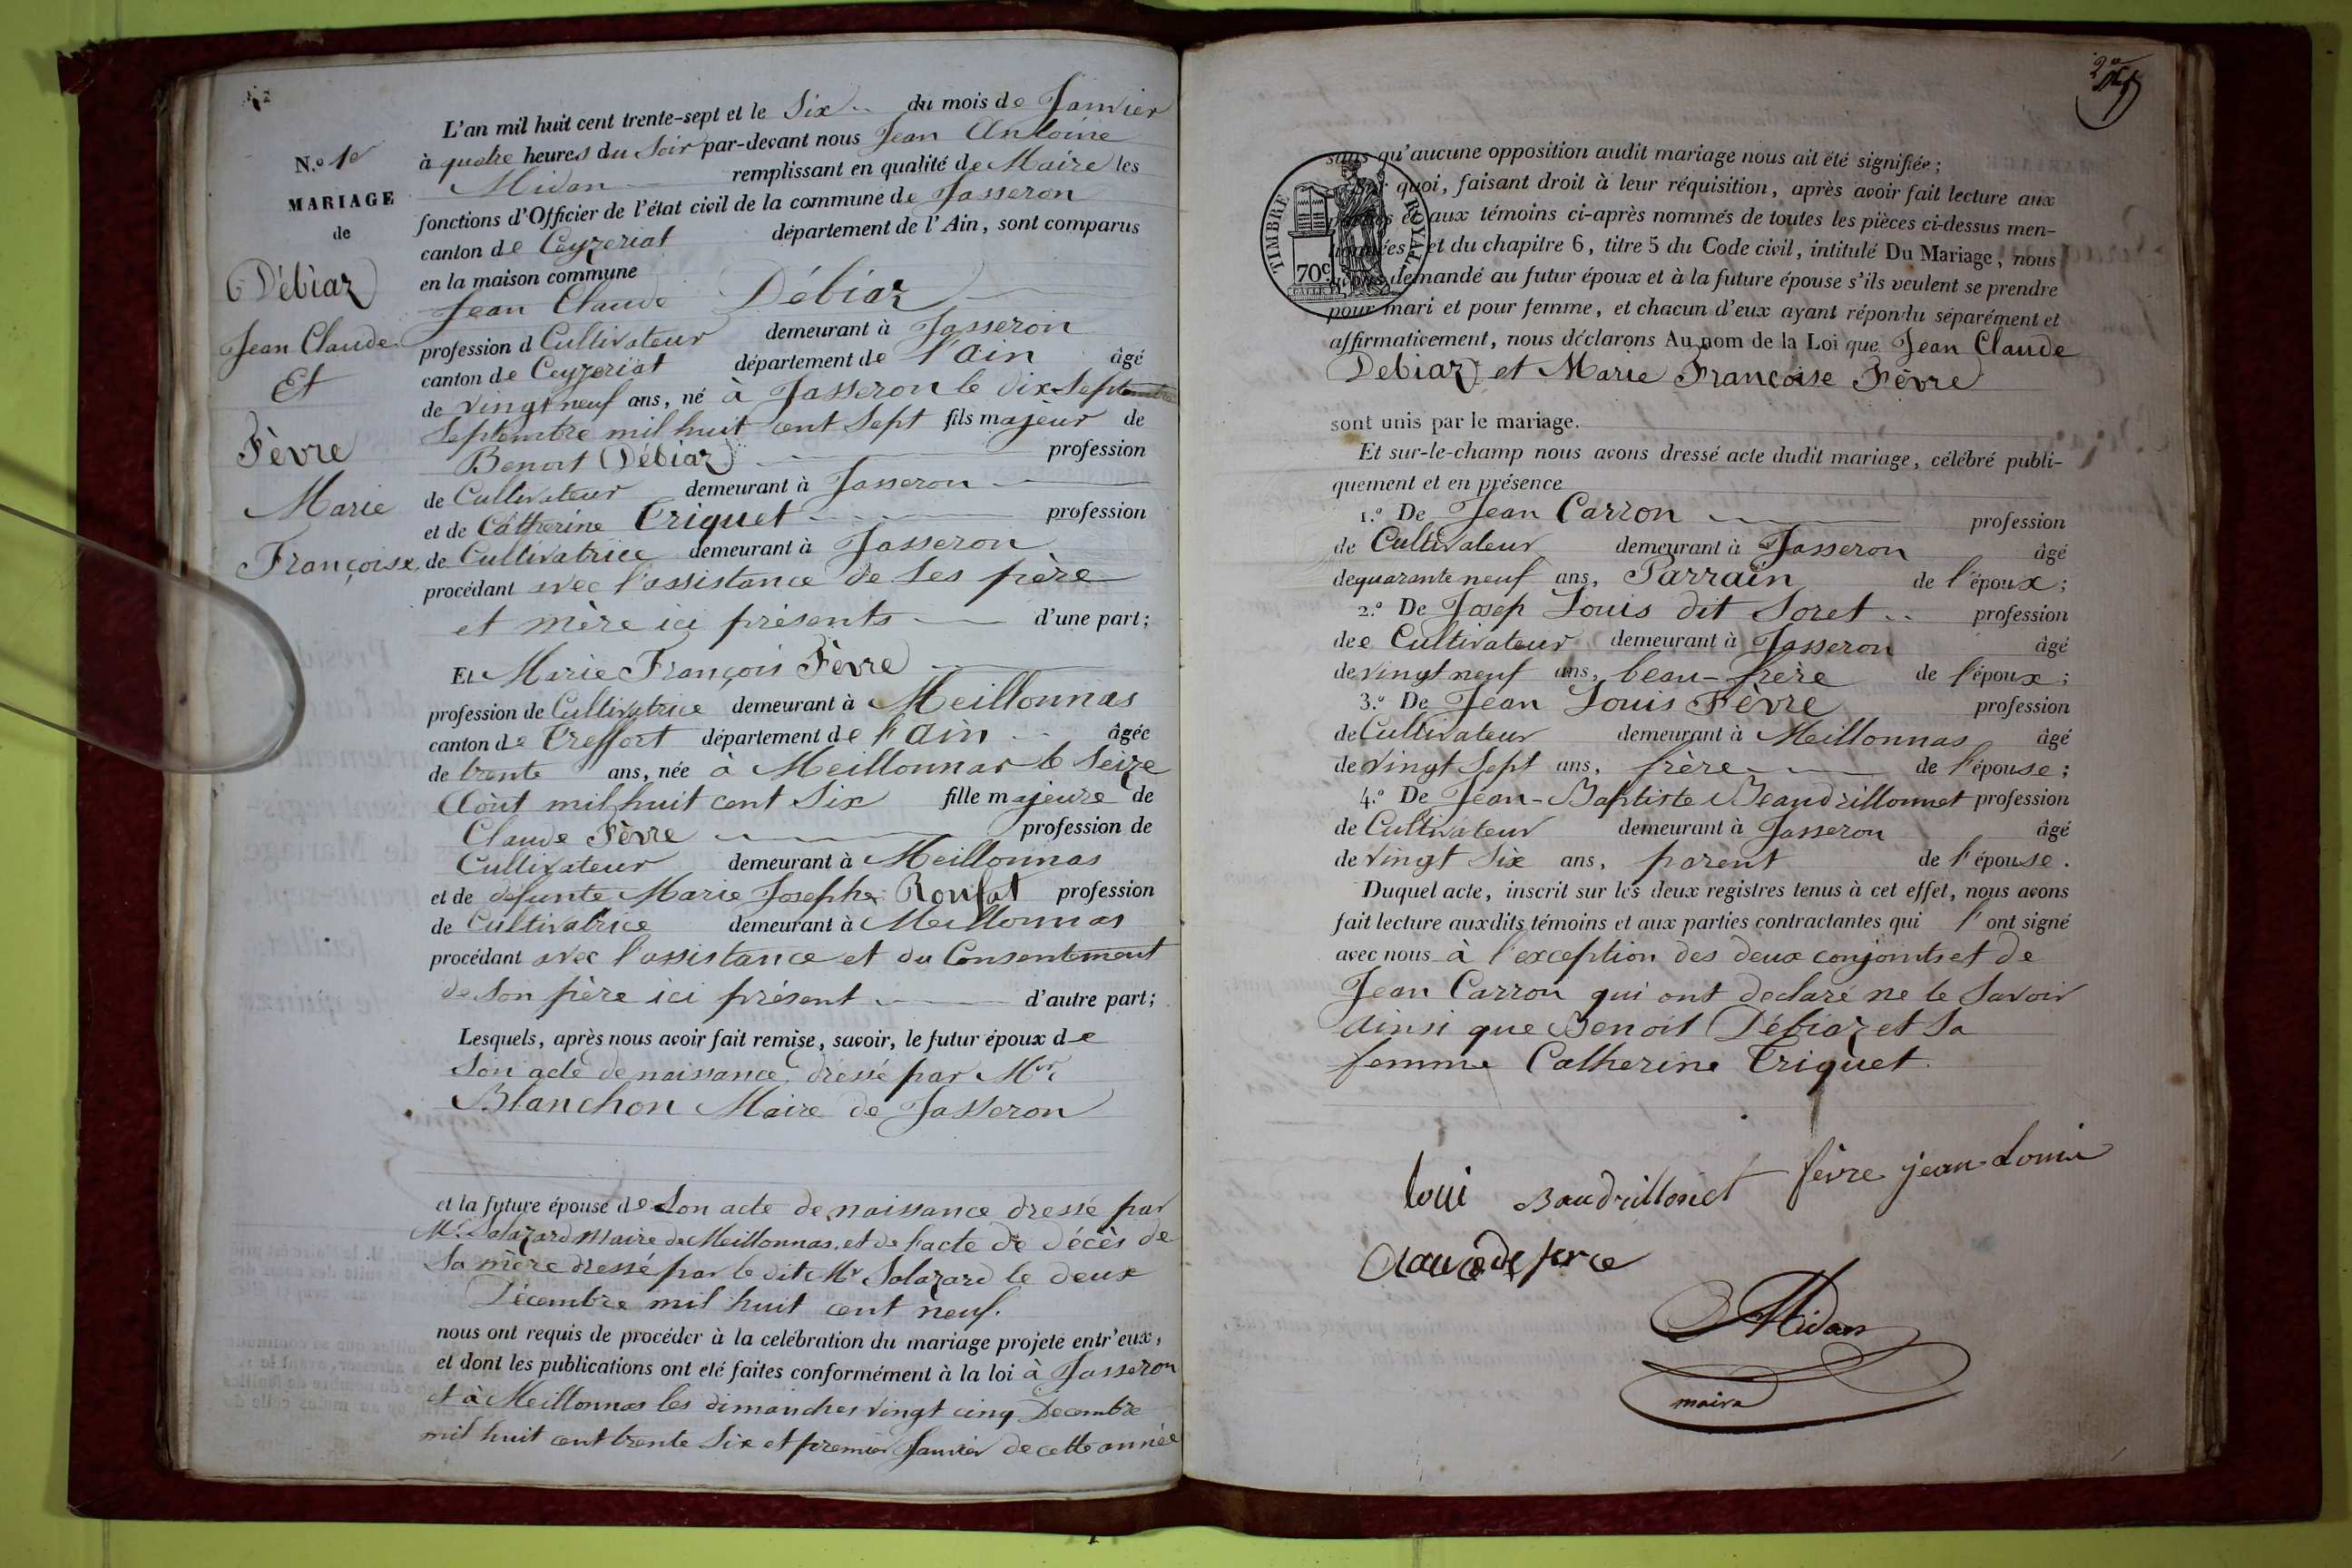 N.o 1er
MARIAGE
de
Débiaz
Jean Claude
Et
Fèvre
Marie
Françoise
L'an mil huit cent trente-sept et le Six du mois de Janvier
à quatre heures du Soir par-devant nous Jean Antoine
Midan remplissant en qualité de Maire les
fonctions d'Officier de l'état civil de la commune de Jasseron
canton de Ceyzeriat département de l'Ain, sont comparus
en la maison commune
Jean Claude Débiaz
profession d Cultivateur demeurant à Jasseron
canton de Ceyzeriat département de l'ain âgé
de vingt neuf ans, né à Jasseron le dix Septembre
Septembre mil huit cent Sept fils majeur de
Benoit Débiaz profession
de Cultivateur demeurant à Jasseron
et de Catherine Triquet profession
de Cultivatrice demeurant à Jasseron
procédant avec l'assistance de Ses père
et mère ici présents d'une part;
Et Marie François Fèvre
profession de Cultivatrice demeurant à Meillonnas
canton de Treffort département de l'Ain âgée
de trente ans, née à Meillonnas le Seize
Août mil huit cent Six fille majeure de
Claude Fèvre profession de
Cultivateur demeurant à Meillonnas
et de defunte Marie Josephe Ronfat profession
de Cultivatrice demeurant à Meillonnas
procédant avec l'assistance et du Consentement
de Son père ici présent d'autre part;
Lesquels, après nous avoir fait remise, savoir, le futur époux de
Son acte de naissance dressé par Mr
Blanchon Maire de Jasseron
et la future épouse de Son acte de naissance dressé par
Mr Salazard Maire de Meillonnas, et de l'acte de décès de
Sa mère dressé par le dit Mr Salazard le deux
Décembre mil huit cent neuf.
nous ont requis de procéder à la celébration du mariage projeté entr'eux,
et dont les publications ont eté faites conformément à la loi à Jasseron
et à Meillonnas les dimanches vingt cinq Decembre
mil huit cent trente Six et premier Janvier de cette année
TIMBRE ROYAL
70c
sans qu'aucune opposition audit mariage nous ait été signifiée;
quoi, faisant droit à leur réquisition, après avoir fait lecture aux
et aux témoins ci-après nommés de toutes les pièces ci-dessus men-
et du chapitre 6, titre 5 du Code civil, intitulé Du Mariage, nous
demandé au futur époux et à la future épouse s'ils veulent se prendre
pour mari et pour femme, et chacun d'eux ayant répondu séparément et
affirmativement, nous déclarons Au nom de la Loi que Jean Claude
Debiaz et Marie Françoise Fèvre
sont unis par le mariage.
Et sur-le-champ nous avons dressé acte dudit mariage, célébré publi-
quement et en présence
1.o De Jean Carron profession
de Cultivateur demeurant à Jasseron âgé
de quarante neuf ans, Parrain de l'époux;
2.o De Josep Louis dit Soret profession
de e Cultivateur demeurant à Jasseron âgé
de vingt neuf ans, beau-frère de l'époux;
3.o De Jean Louis Fèvre profession
de Cultivateur demeurant à Meillonnas âgé
de vingt Sept ans, frère de l'épouse;
4.o De Jean-Baptiste Beaudrillonnet profession
de Cultivateur demeurant à Jasseron âgé
de vingt Six ans, parent de l'épouse.
Duquel acte, inscrit sur les deux registres tenus à cet effet, nous avons
fait lecture auxdits témoins et aux parties contractantes qui l'ont signé
avec nous à l'exception des deux conjoints et de
Jean Carron qui ont declaré ne le Savoir
ainsi que Benoit Débiaz et Sa
femme Catherine Triquet.
loui Baudrillonet fèvre jean-louis
Midan
maire